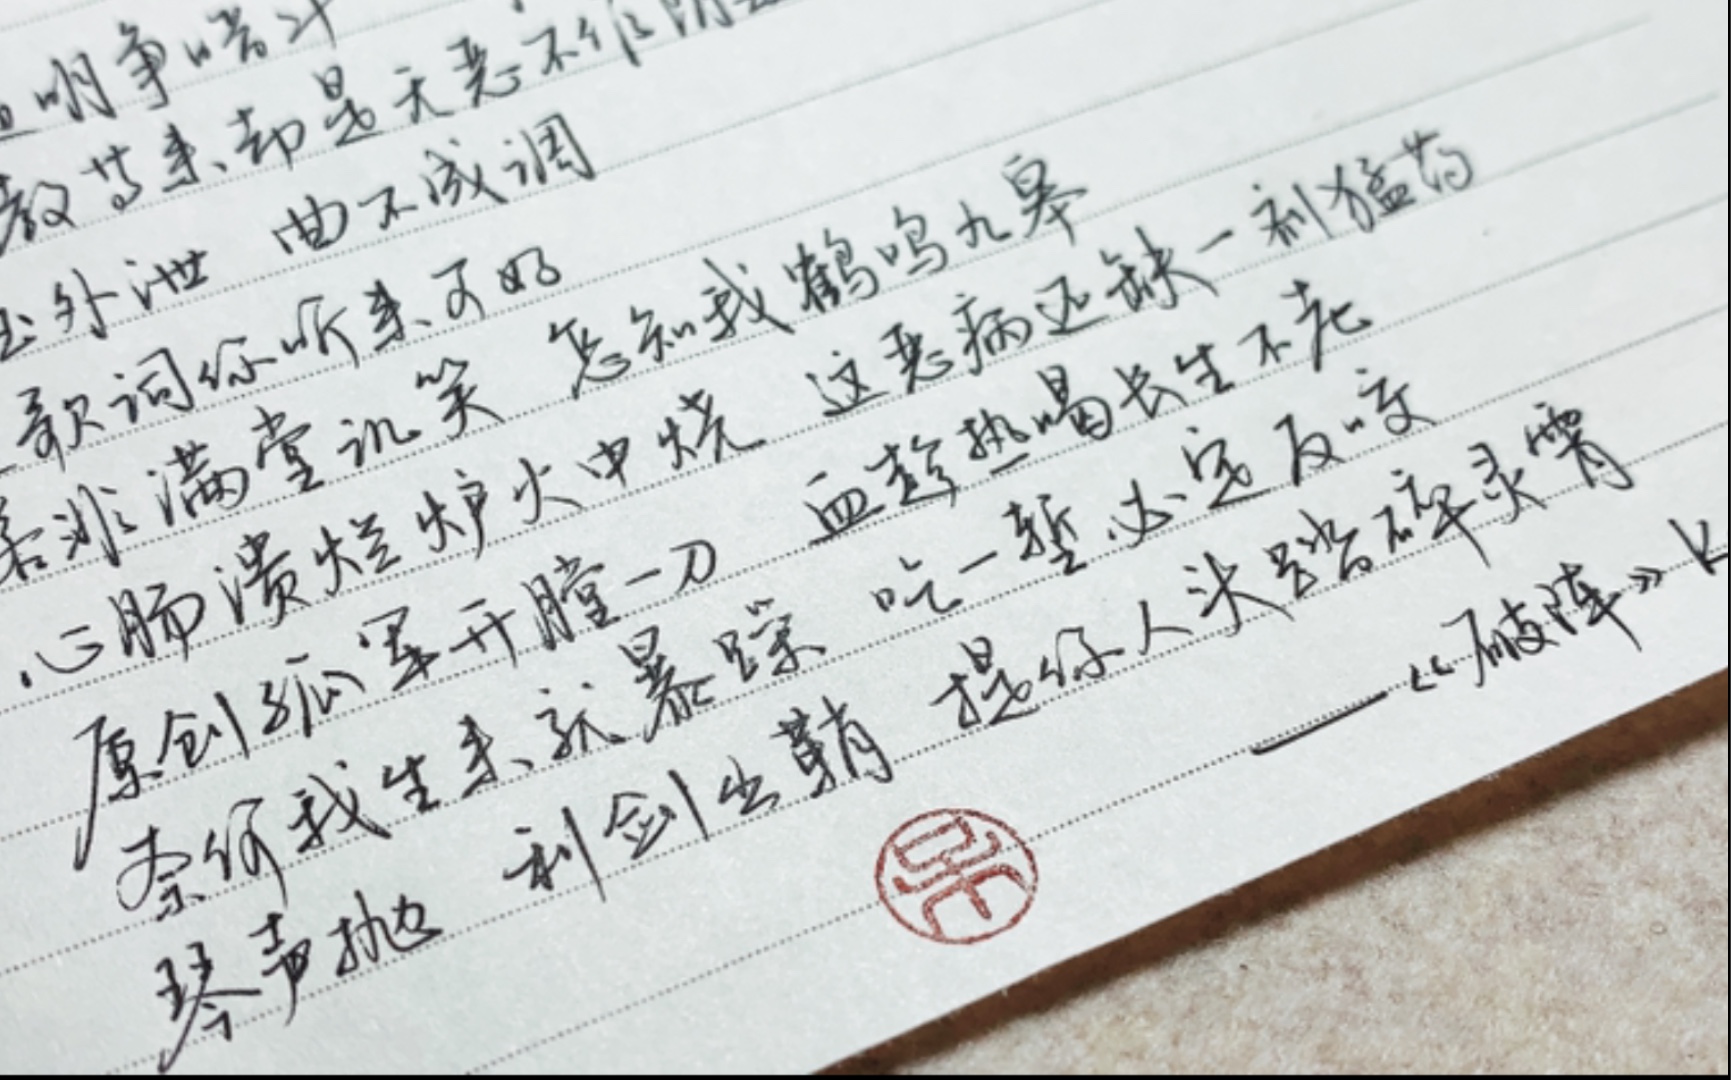 明争暗斗
教苦来却是无恶不作
外泄 曲不成调
歌词你听来可好
若非满堂讥笑 怎知我鹤鸣九皋
心肠溃烂炉火中烧 这恶病还缺一剂猛药
原创孤军开膛一刀 血趁热喝长生不老
奈何我生来就暴躁 吃一堑必定反咬
琴声抛 利剑出鞘 提你人头踏碎灵霄
——《破阵》K